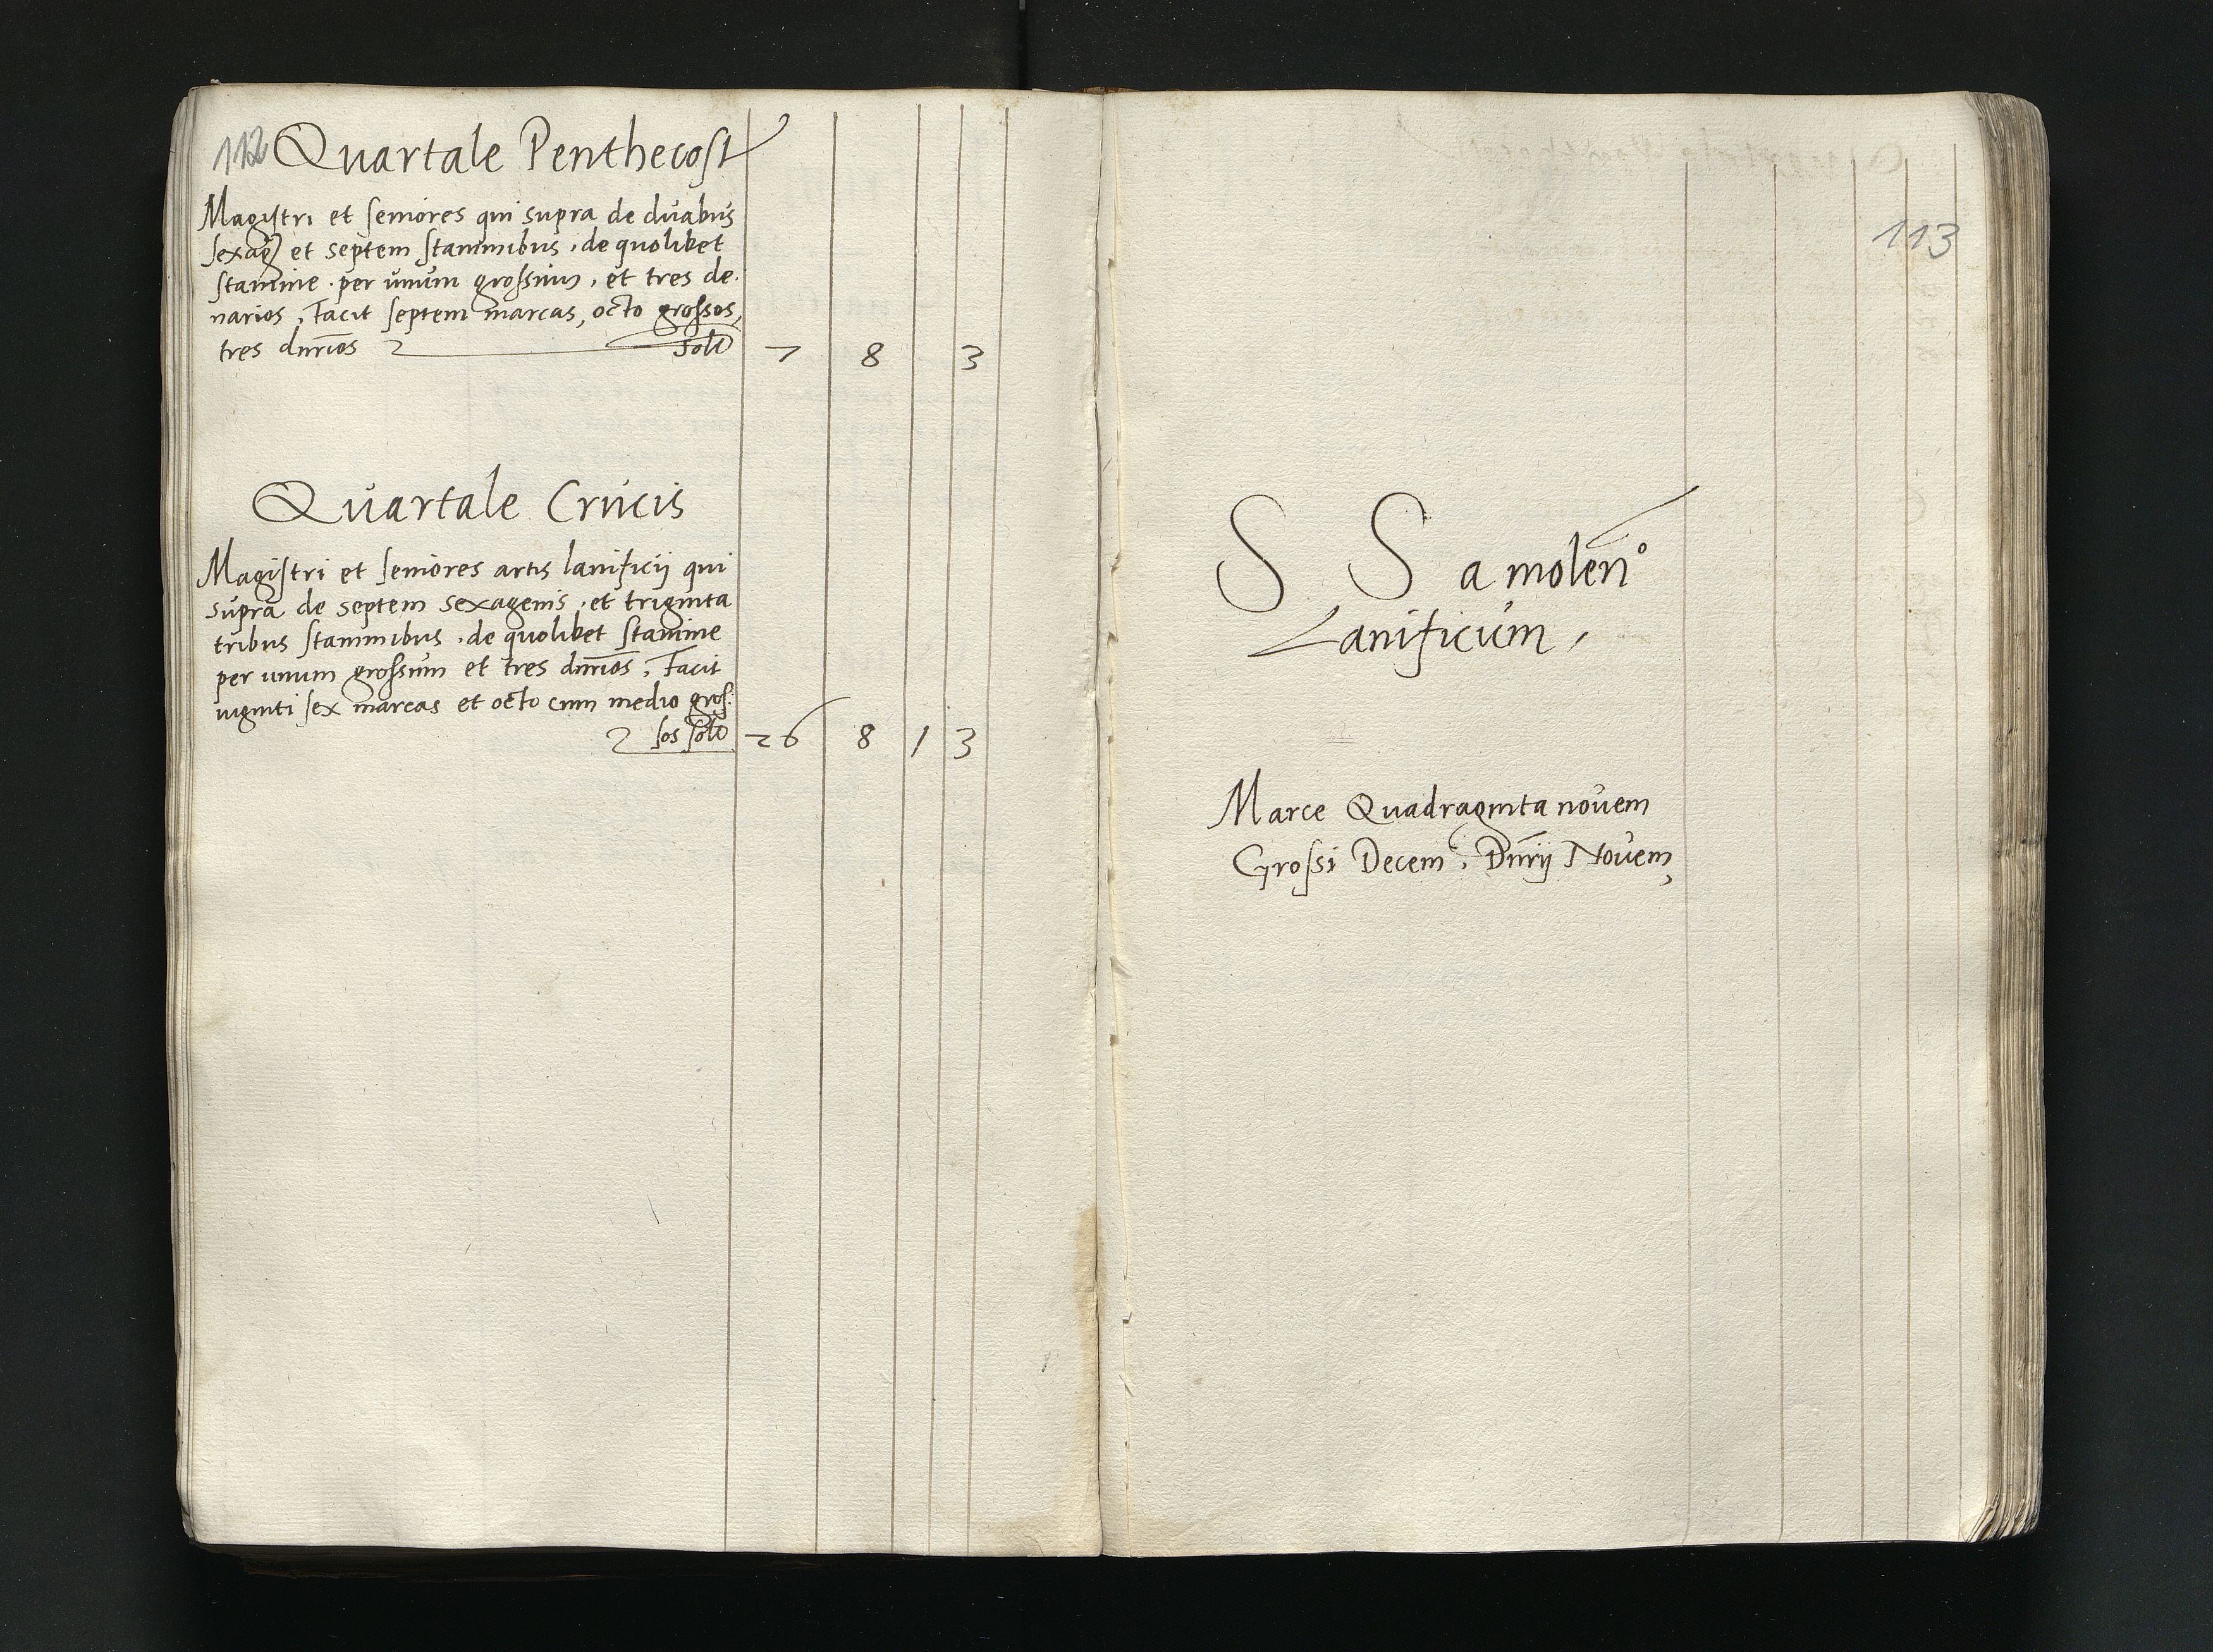 112 Quartale Penthecost
Magistri et seniores qui supra de duabus
sexag et septem staminibus, de quolibet
stamine. per unum grossum, et tres de.
narios, Facit septem marcas, octo grossos,
tres dnrios solt 7 8 3
Quartale Crucis
Magistri et seniores artis lanificij qui
supra de septem sexagenis, et triginta
tribus staminibus, de quolibet stamine
per unum grossum et tres dnrios, Facit
viginti sex marcas et octo cum medio gros:
sos solt 26 8 1 3
113
S S a molen°
Lanificum,
Marce Quadraginta novem
Grossi Decem, Dnrij Novem,